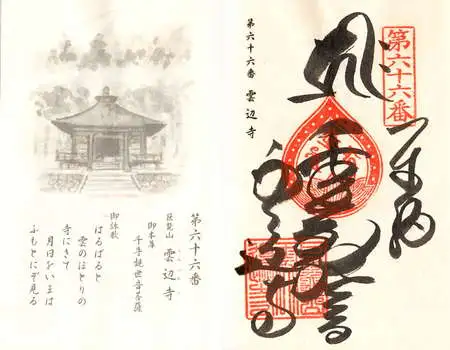 第六十六番
奉納
第六十六番 雲辺寺
第六十六番
巨鼇山 雲辺寺
御本尊
千手観世音菩薩
御詠歌
はるばると
雲のほとりの
寺にきて
月日をいまは
ふもとにぞ見る